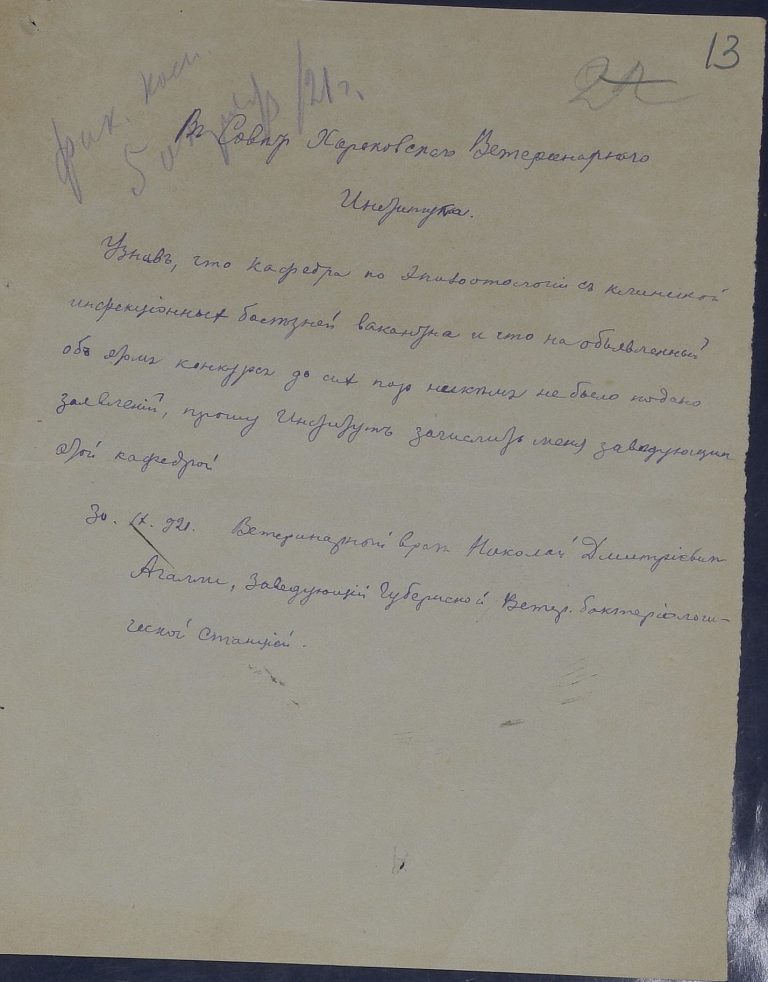 13
фак. ком.
5 октябр /21 г.
Въ Совѣтъ Харьковскаго Ветеринарнаго
Института.
Узнавъ, что кафедра по Эпизоотологіи съ клиникой
инфекціонныхъ болѣзней вакантна и что на объявленный
объ этомъ конкурсъ до сихъ поръ никѣмъ не было подано
заявленій, прошу Институтъ зачислить меня заведующим
этой кафедрой
30. IX. 921. Ветеринарный врач Николай Дмитріевич
Агалли, Заведующій Губернской Ветер. бактеріологи-
ческой Станціей.